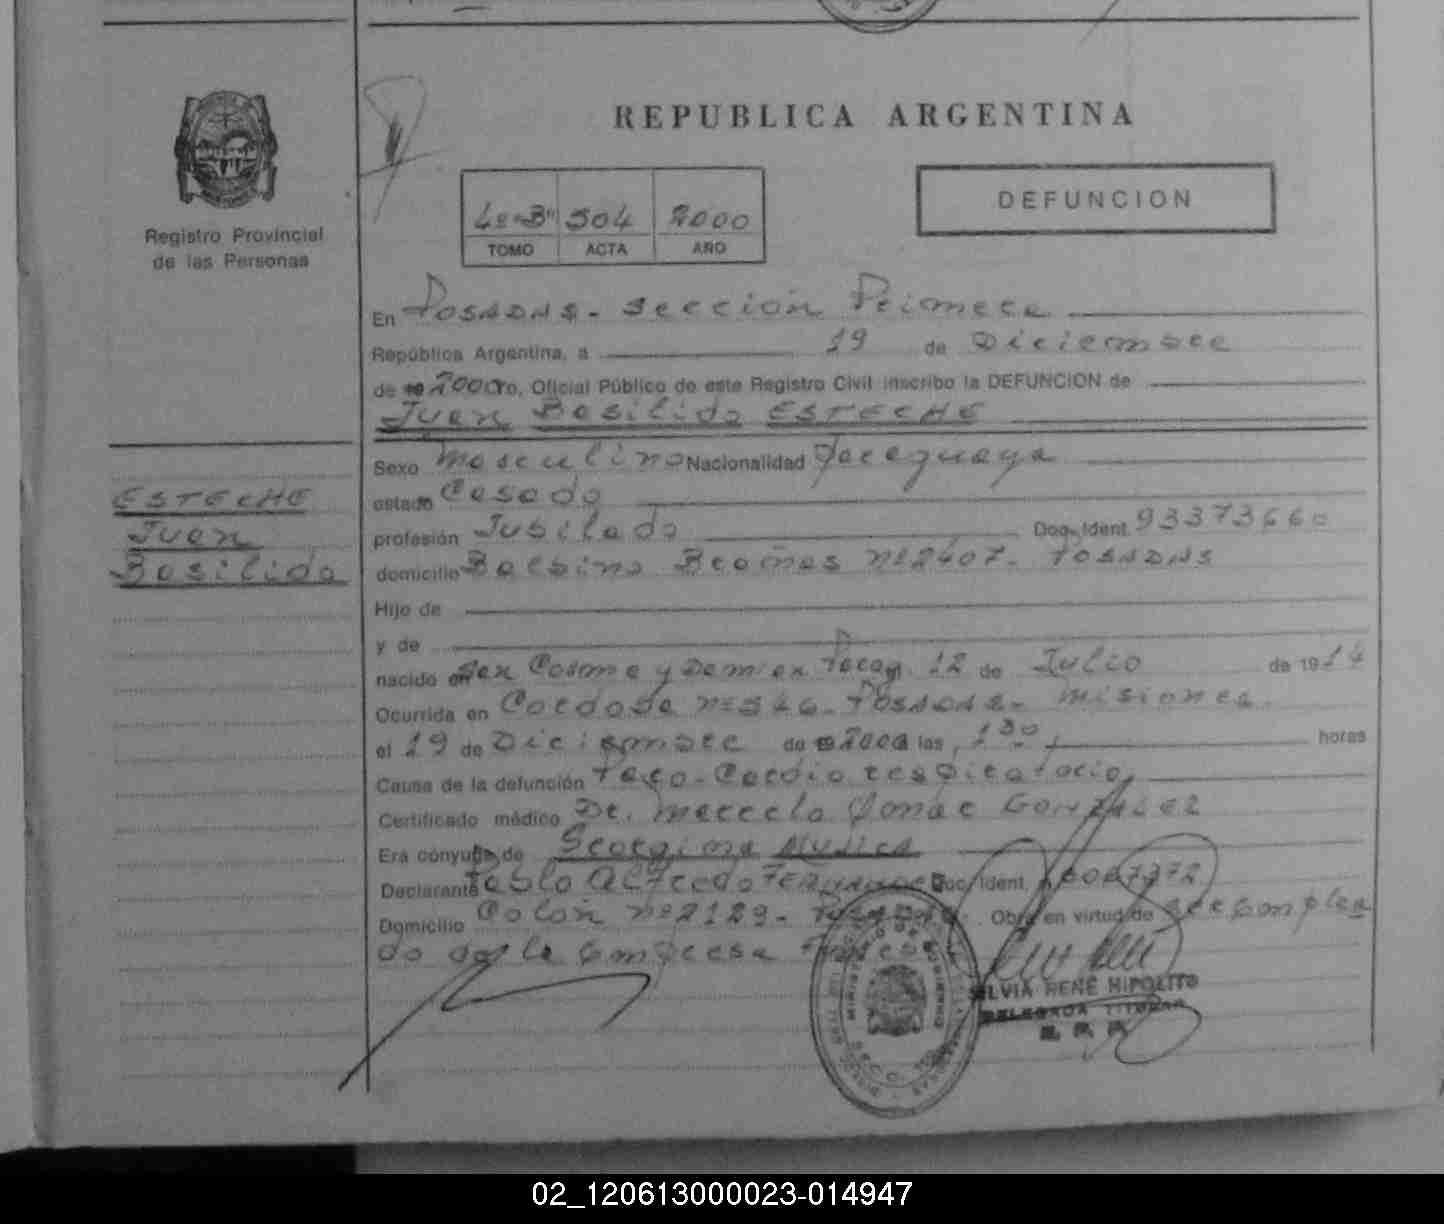 REPUBLICA ARGENTINA
DEFUNCION
4º "B" 504 2000
TOMO ACTA AÑO
Registro Provincial
de las Personas
En Posadas - Sección Primera
República Argentina, a 19 de Diciembre
de 2000 yo, Oficial Público de este Registro Civil inscribo la DEFUNCION de
Juan Basilido ESTECHE
ESTECHE
Juan
Basilido
Sexo Masculino Nacionalidad Paraguaya
estado Casado
profesión Jubilado Doc. Ident. 93373660
domicilio Balbino Brañas Nº 2407 - Posadas
Hijo de
y de
nacido en San Cosme y Damian Parag. 12 de Julio de 1914
Ocurrida en Cordoba Nº 546 - Posadas - Misiones
el 19 de Diciembre de 2000 a las 1 30 horas
Causa de la defunción Paro - Cardio respiratorio
Certificado médico Dr. Marcelo GONZALEZ
Era cónyuge de Georgina
Declarante Pablo Alfredo Doc. Ident.
Domicilio Colón Nº 2129 - Posadas. Obra en virtud de ser emplea
do de la Empresa
MINISTERIO DE GOBIERNO
SILVIA RENE HIPOLITO
DELEGADA TITULAR
02_120613000023-014947